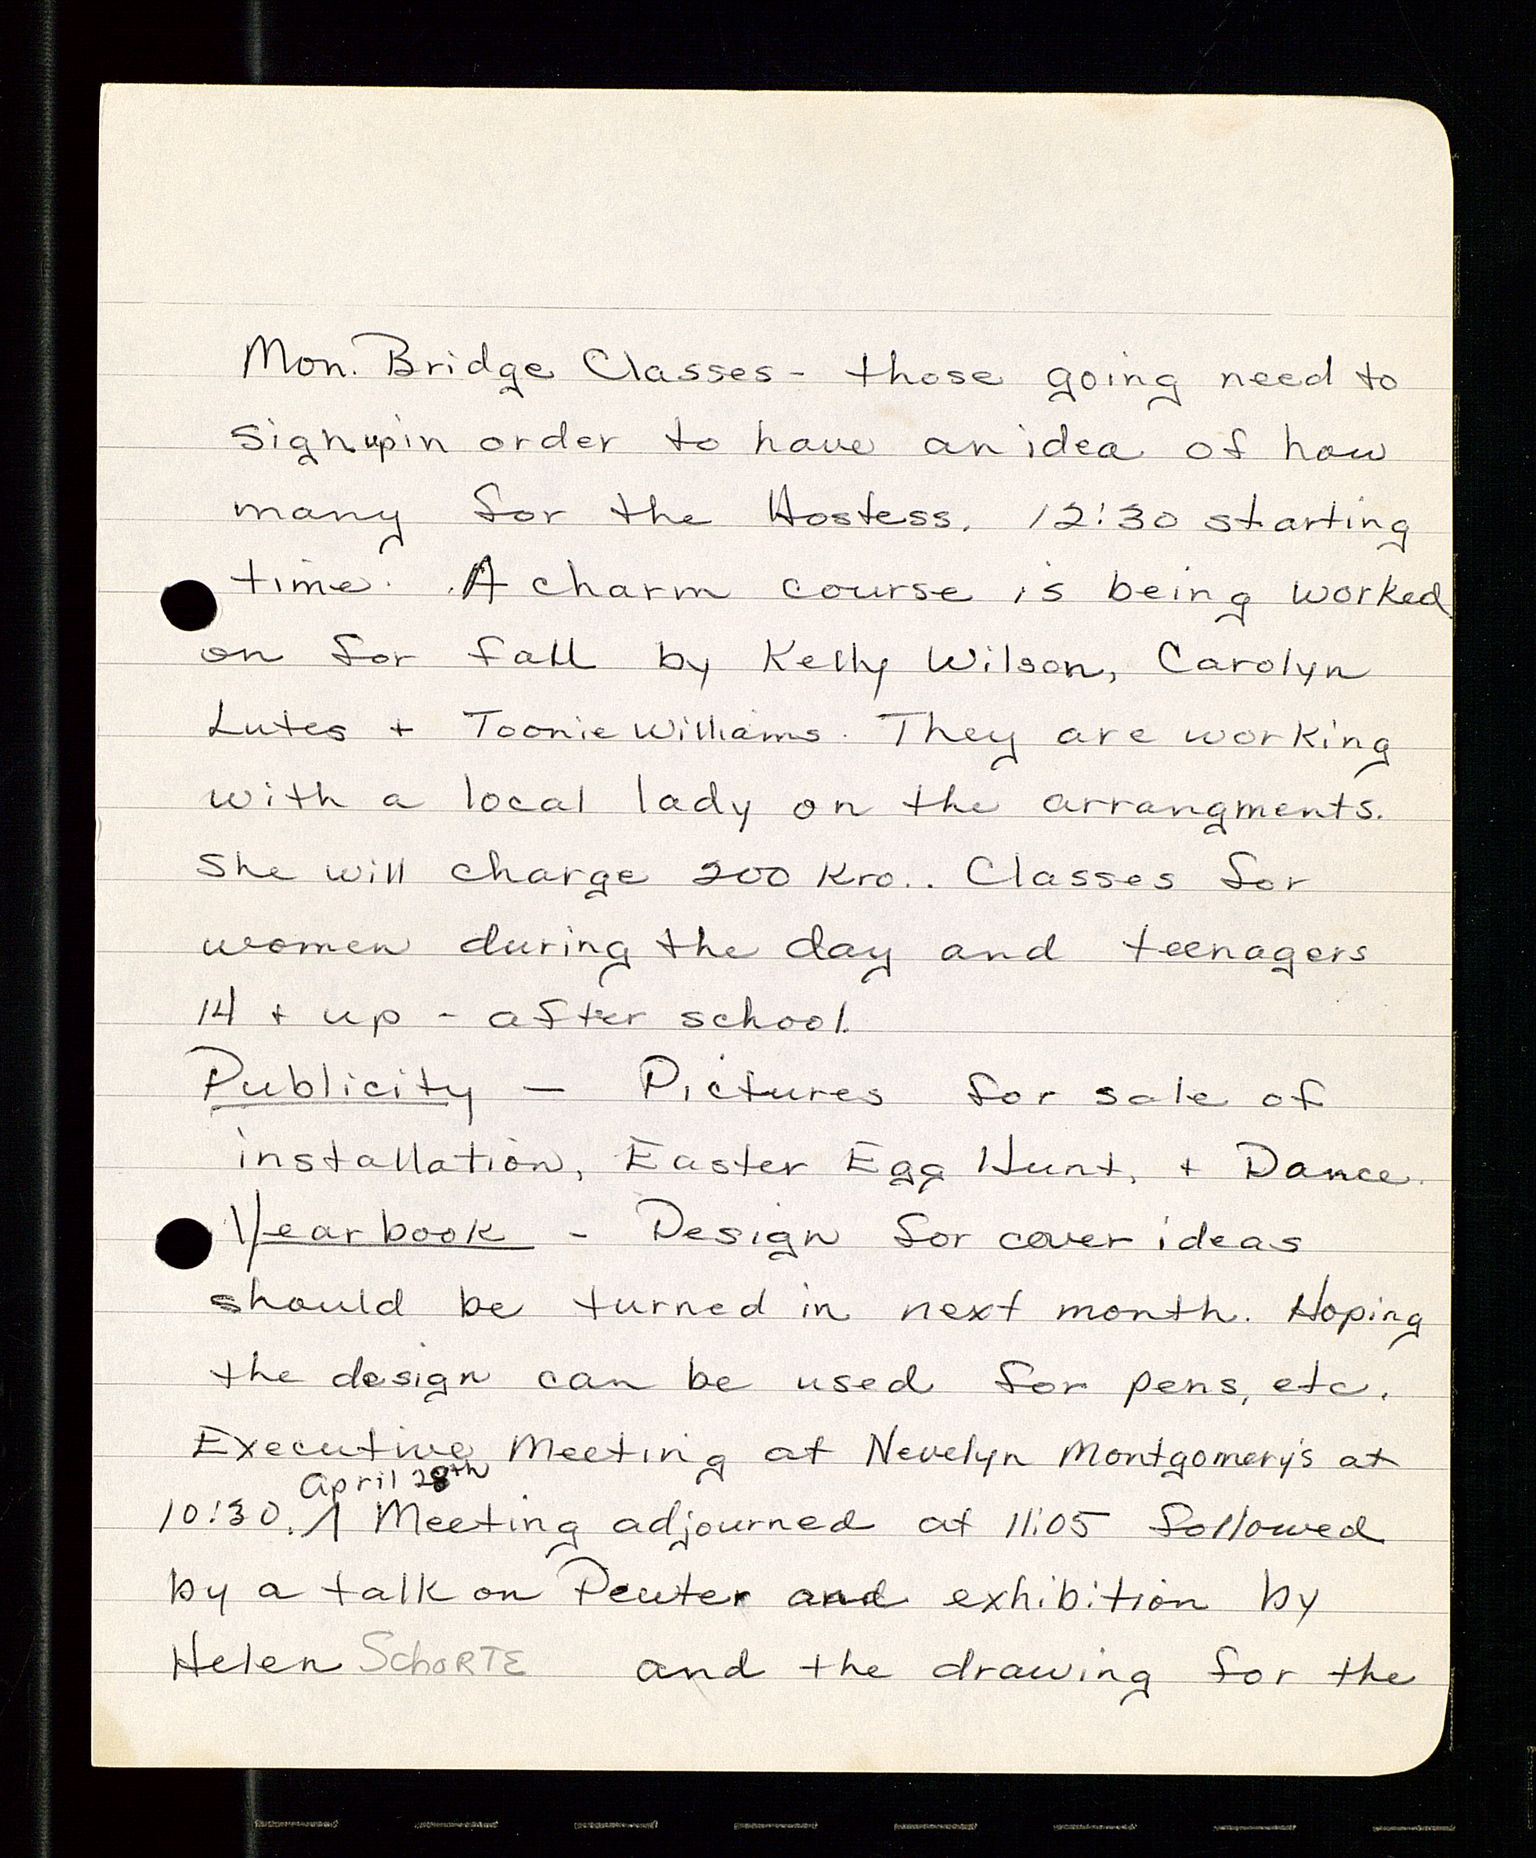 Mon. Bridge Classes - those going need to
sign up in order to have an idea of how
many for the Hostess. 12:30 starting
time. A charm course is being worked
on for fall by Kelly Wilson, Carolyn
Lutes + Toonie Williams. They are working
with a local lady on the arrangments.
She will charge 200 Kro.. Classes for
women during the day and teenagers
14 + up - after school.
Publicity - Pictures for sale of
installation, Easter Egg Hunt, + Dance.
Yearbook - Design for cover ideas
should be turned in next month. Hoping
the design can be used for pens, etc.
Executive Meeting at Nevelyn Montgomery's at
April 28th
10:30. Meeting adjourned at 11:05 followed
by a talk on Pewter and exhibition by
Helen SchoRTE and the drawing for the